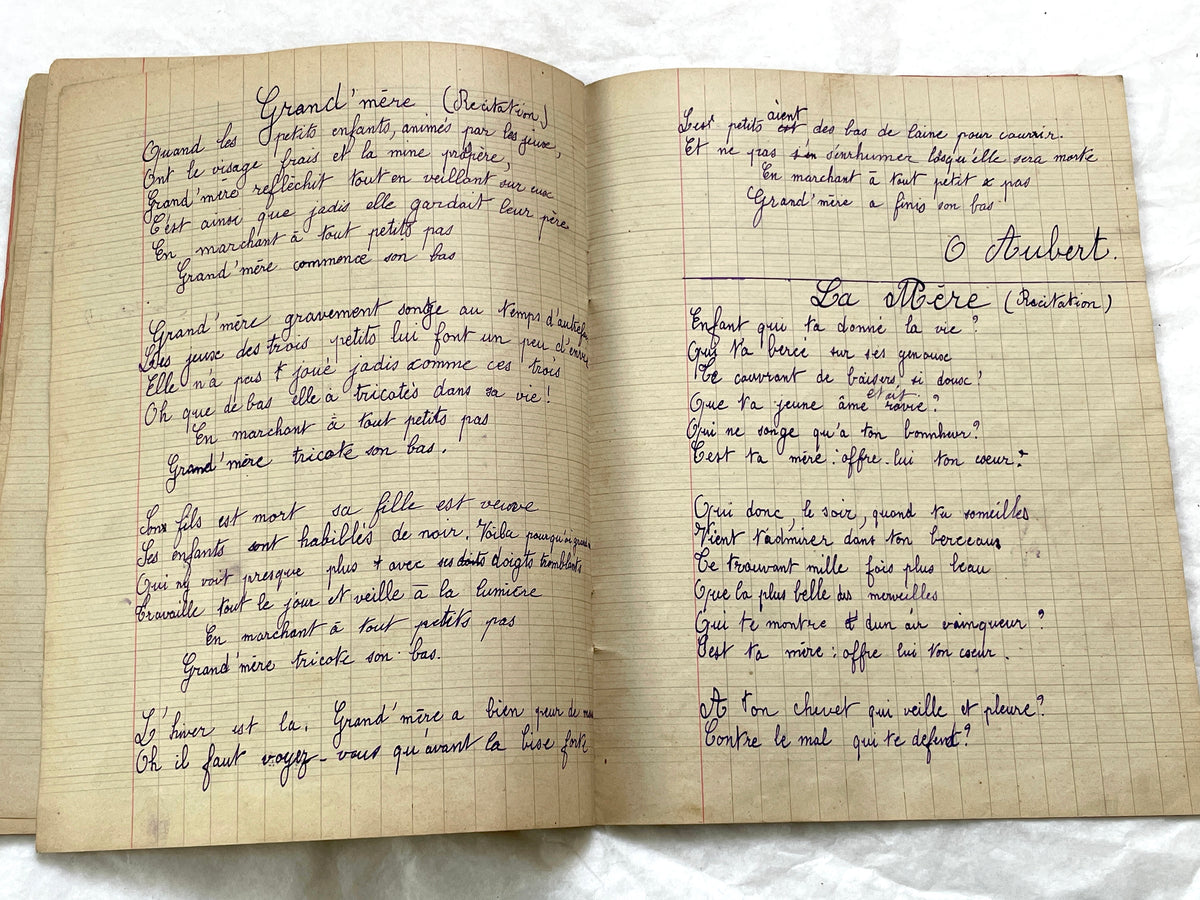 Grand'mère (Recitation)
Quand les petits enfants, animés par les jeux,
Ont le visage frais et la mine prospère,
Grand'mère refléchit tout en veillant sur eux
C'est ainsi que jadis elle gardait leur père
En marchant à tout petits pas
Grand'mère commence son bas
Grand'mère gravement songe au temps d'autrefois
Les jeux des trois petits lui font un peu d'envie
Elle n'a pas joué jadis comme ces trois
Oh que de bas elle à tricotés dans sa vie!
En marchant à tout petits pas
Grand'mère tricote son bas.
Son fils est mort sa fille est veuve
Ses enfants sont habillés de noir. Voila pourquoi
Qui ny voit presque plus avec ses doigts tremblants
Travaille tout le jour et veille à la lumière
En marchant à tout petits pas
Grand'mère tricote son bas.
L'hiver est la. Grand'mère a bien peur de
Oh il faut voyez-vous qu'avant la bise forte
Les petits aient des bas de laine pour courir.
Et ne pas s'enrhumer losqu'elle sera morte
En marchant à tout petit pas
Grand'mère a finis son bas
O Aubert.
La Mère (Recitation)
Enfant qui ta donné la vie?
Qui t'a bercé sur ses genoux
Te couvrant de baisers si doux?
Que ta jeune âme etait ravie?
Qui ne songe qu'a ton bonnheur?
C'est ta mère: offre-lui ton coeur?
Qui donc, le soir, quand tu someilles
Vient t'admirer dans ton berceau
Te trouvant mille fois plus beau
Que la plus belle des merveilles
Qui te montre dun air vainqueur?
C'est ta mère: offre lui ton coeur.
A ton chevet qui veille et pleure?
Contre le mal qui te defend?